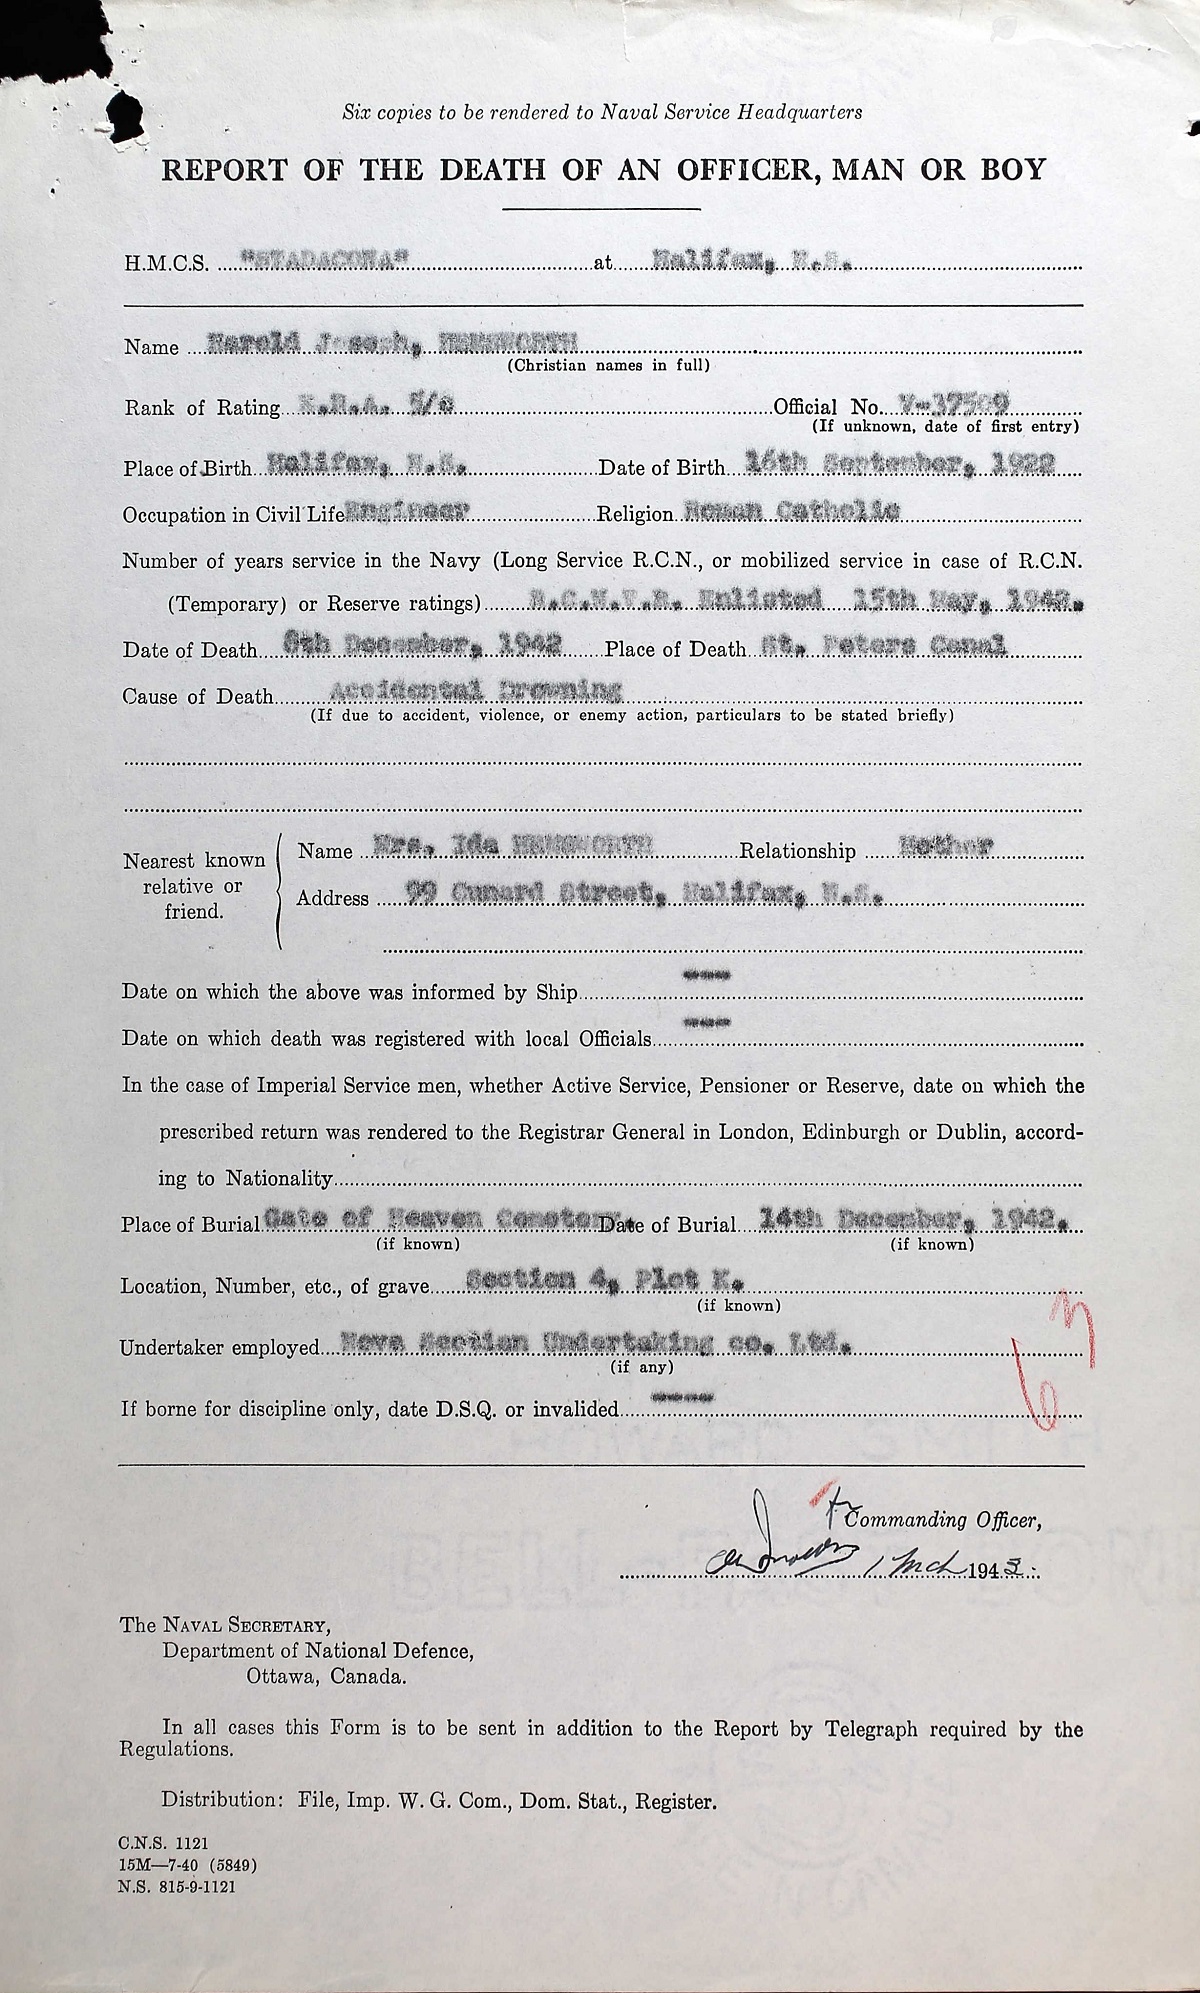 Six copies to be rendered to Naval Service Headquarters
REPORT OF THE DEATH OF AN OFFICER, MAN OR BOY
H.M.C.S. "STADACONA" at Halifax, N.S.
Name Harold Joseph, HEMSWORTH
(Christian names in full)
Rank of Rating E.R.A. 5/c Official No. V-37509
(If unknown, date of first entry)
Place of Birth Halifax, N.S. Date of Birth 16th September, 1922
Occupation in Civil Life Engineer Religion Roman Catholic
Number of years service in the Navy (Long Service R.C.N., or mobilized service in case of R.C.N.
(Temporary) or Reserve ratings) R.C.N.V.R. Enlisted 15th May, 1942.
Date of Death 8th December, 1942 Place of Death St. Peters Canal
Cause of Death Accidental Drowning
(If due to accident, violence, or enemy action, particulars to be stated briefly)
Nearest known relative or friend.
Name Mrs. Ida HEMSWORTH Relationship Mother
Address 99 Cunard Street, Halifax, N.S.
Date on which the above was informed by Ship ----
Date on which death was registered with local Officials ----
In the case of Imperial Service men, whether Active Service, Pensioner or Reserve, date on which the
prescribed return was rendered to the Registrar General in London, Edinburgh or Dublin, accord-
ing to Nationality
Place of Burial Gate of Heaven Cemetery Date of Burial 14th December, 1942.
(if known) (if known)
Location, Number, etc., of grave Section 4, Plot K.
(if known)
Undertaker employed Nova Scotian Undertaking co. Ltd.
(if any)
If borne for discipline only, date D.S.Q. or invalided ----
Commanding Officer,
1 Mch 1943
The NAVAL SECRETARY,
Department of National Defence,
Ottawa, Canada.
In all cases this Form is to be sent in addition to the Report by Telegraph required by the
Regulations.
Distribution: File, Imp. W. G. Com., Dom. Stat., Register.
C.N.S. 1121
15M—7-40 (5849)
N.S. 815-9-1121